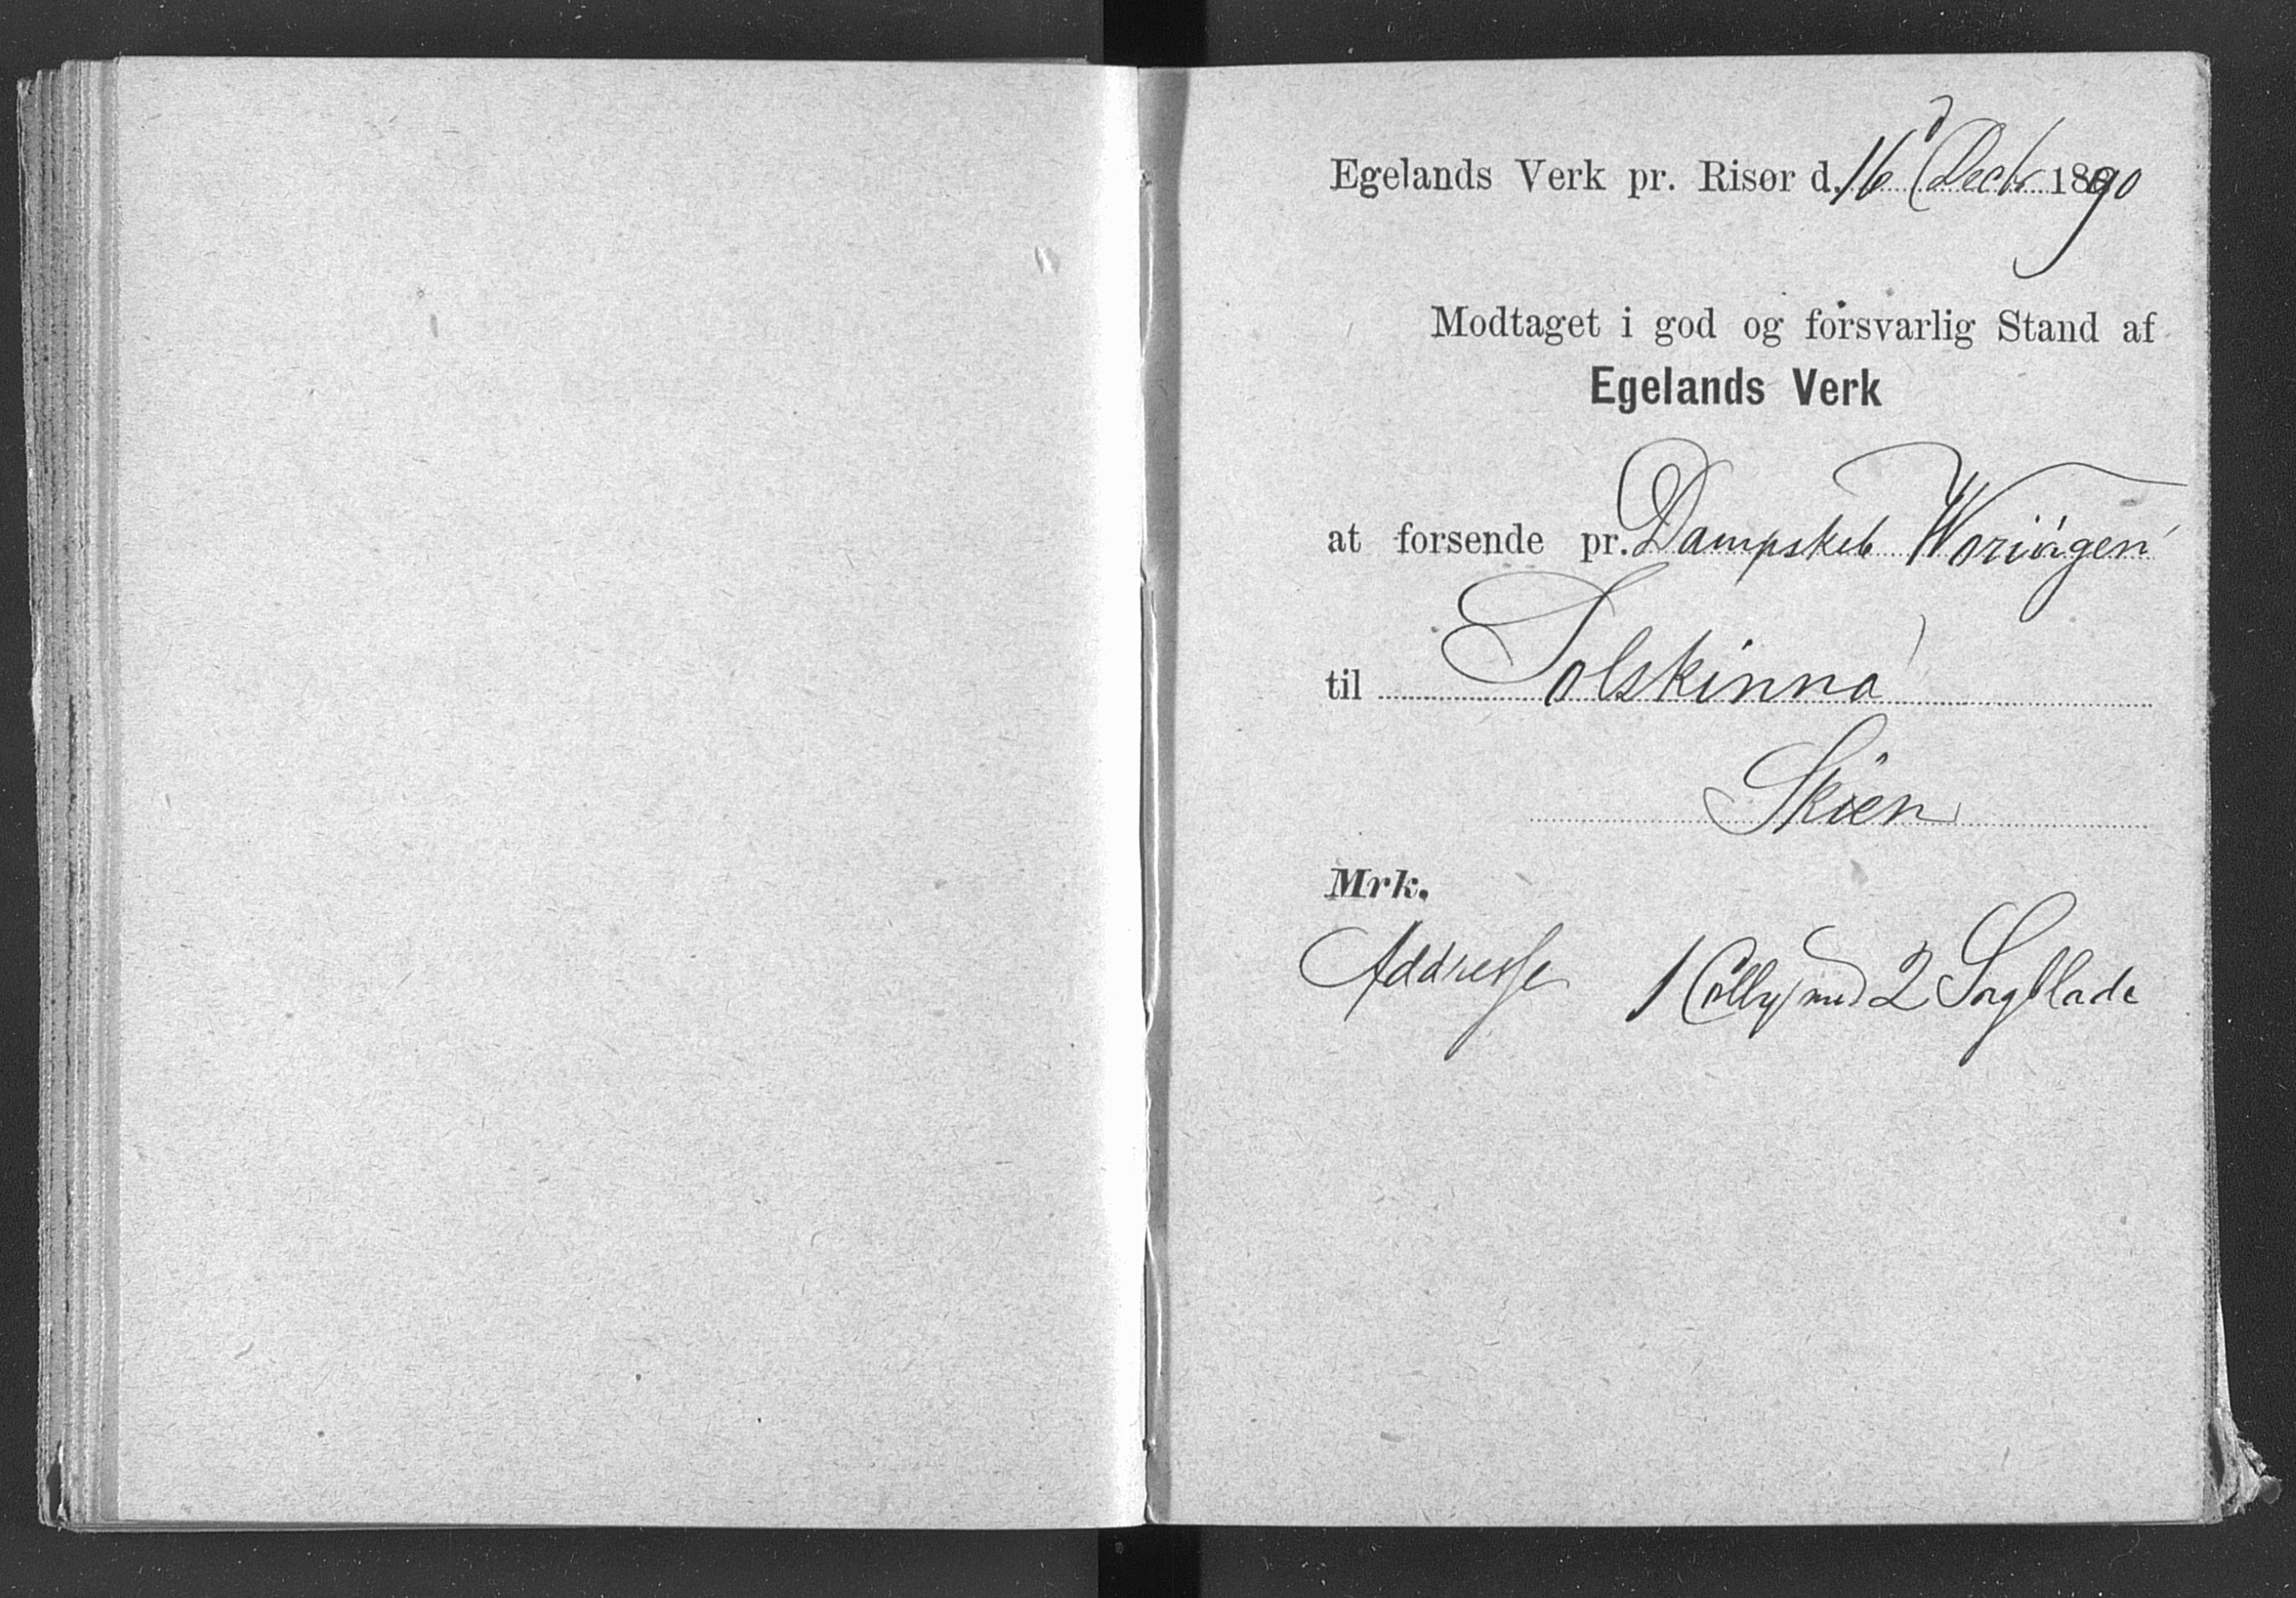 Egelands Verk pr. Risør d. 16 Decbr 1890
Modtaget i god og forsvarlig Stand af
Egelands Verk
at forsende pr. Dampskib
til Solskinna
Skien
Mrk.
Addresse 1 Colly med 2 Sagblade